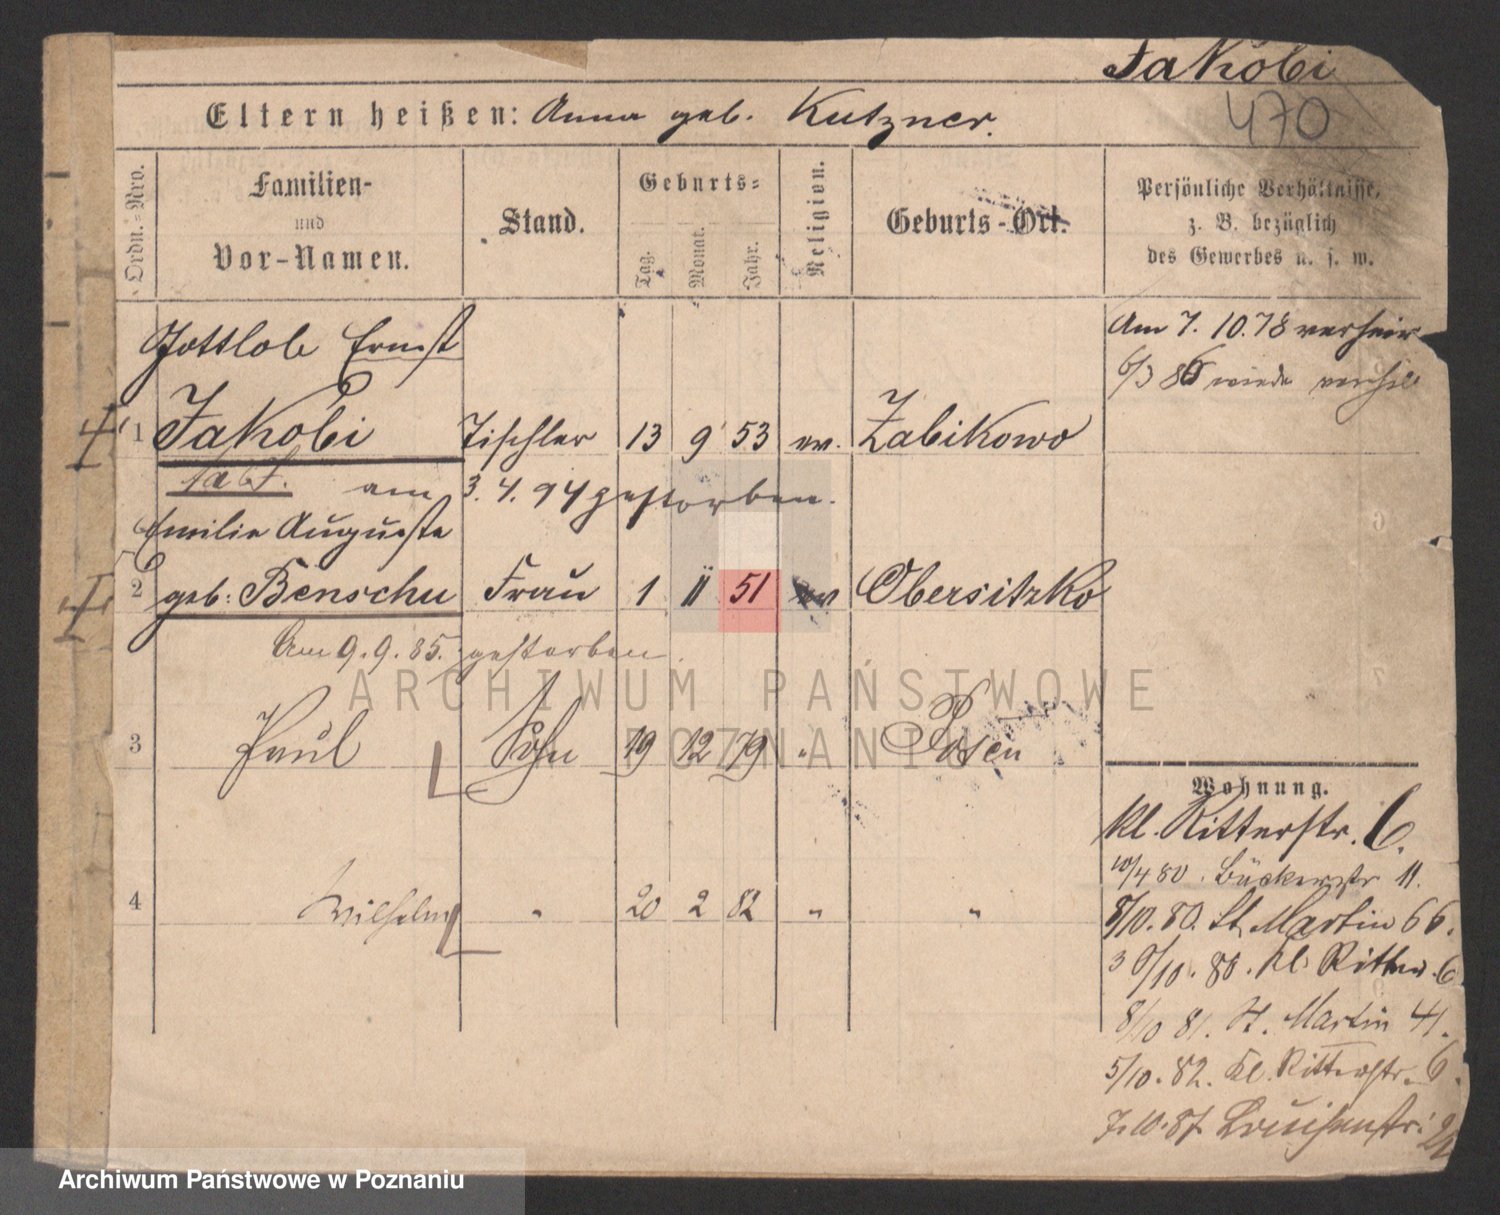 Jakobi
470
Eltern heißen: Anna geb. Kutzner.
Ordn.-Nro.
Familien-
und
Vor-Namen.
Stand.
Geburts-
Tag.
Monat.
Jahr.
Religion.
Geburts-Ort.
Persönliche Verhältnisse,
z. B. bezüglich
des Gewerbes u. s. w.
Gottlob Ernst
Am 7. 10. 78 verheir
6/3 86 wieder verh
1 Jakobi Tischler 13 9 53 ev. Zabikowo
am 3. 4. 94 gestorben.
Emilie Auguste
2 geb: Benschu Frau 1 11 51 ev Obersitzko
Am 9. 9. 85. gestorben
ARCHIWUM PAŃSTWOWE
W POZNANIU
3 Paul Sohn 19 12 79 " Posen
Wohnung.
Kl. Ritterstr. 6.
10/4 80. Bäckerstr 11.
4 Wilhelm " 20 2 82 " "
8/10. 80. St. Martin 66.
/10. 80. Kl. Ritter. 6
8/10 81. St. Martin 41.
5/10. 82. Kl. Ritterstr. 6.
7. 10. 87 Louisenstr:
Archiwum Państwowe w Poznaniu